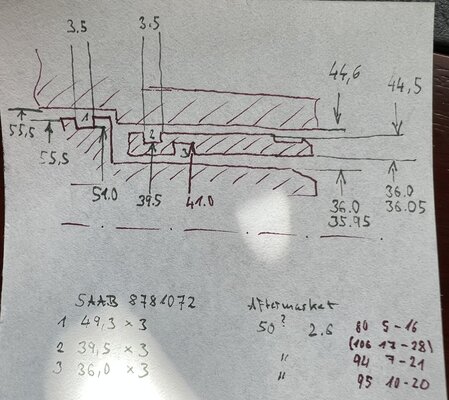 3.5 3.5
44,6
44,5
1
2
3
55,5
55,5
51.0 39.5 41.0
36.0
35.95
36.0
36.05
SAAB 8781072
1 49,3 × 3
2 39,5 × 3
3 36,0 × 3
Aftermarket
50? 2.6 80 5-16
(106 17-28)
" 94 7-21
" 95 10-20